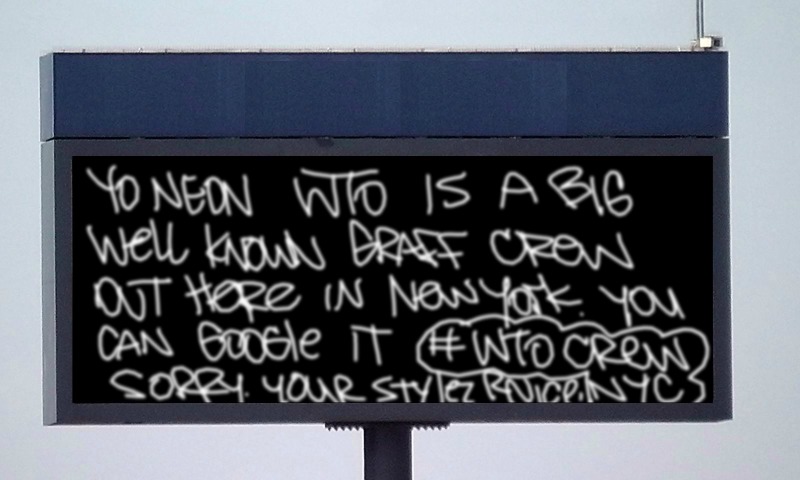 YO NEON WTO IS A BIG
Well KNOWN GRAFF CREW
OUT HeRe IN NewYork. YOU
CAN GOOGle IT #WTO CREW
SORRY. YOUR STYlez R NICE. NYC